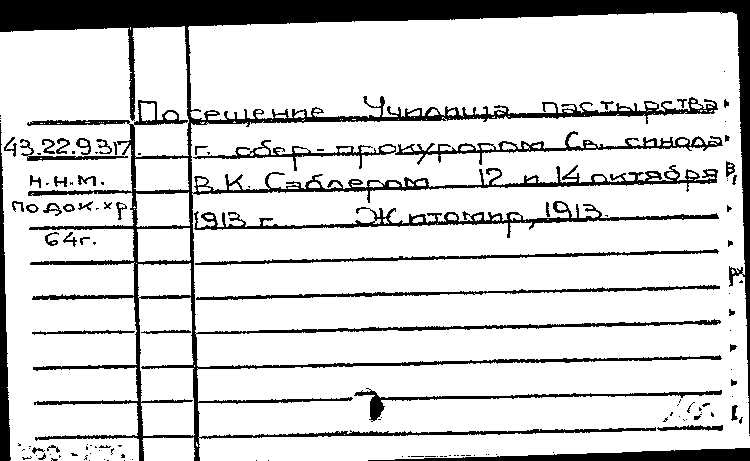 Посещение Училища пастырства
43.22.9.317. г. обер-прокурором Св. синода
н.н.м. В.К. Саблером 12 и 14 октября
по док. хр. 1913 г. Житомир, 1913.
64г.